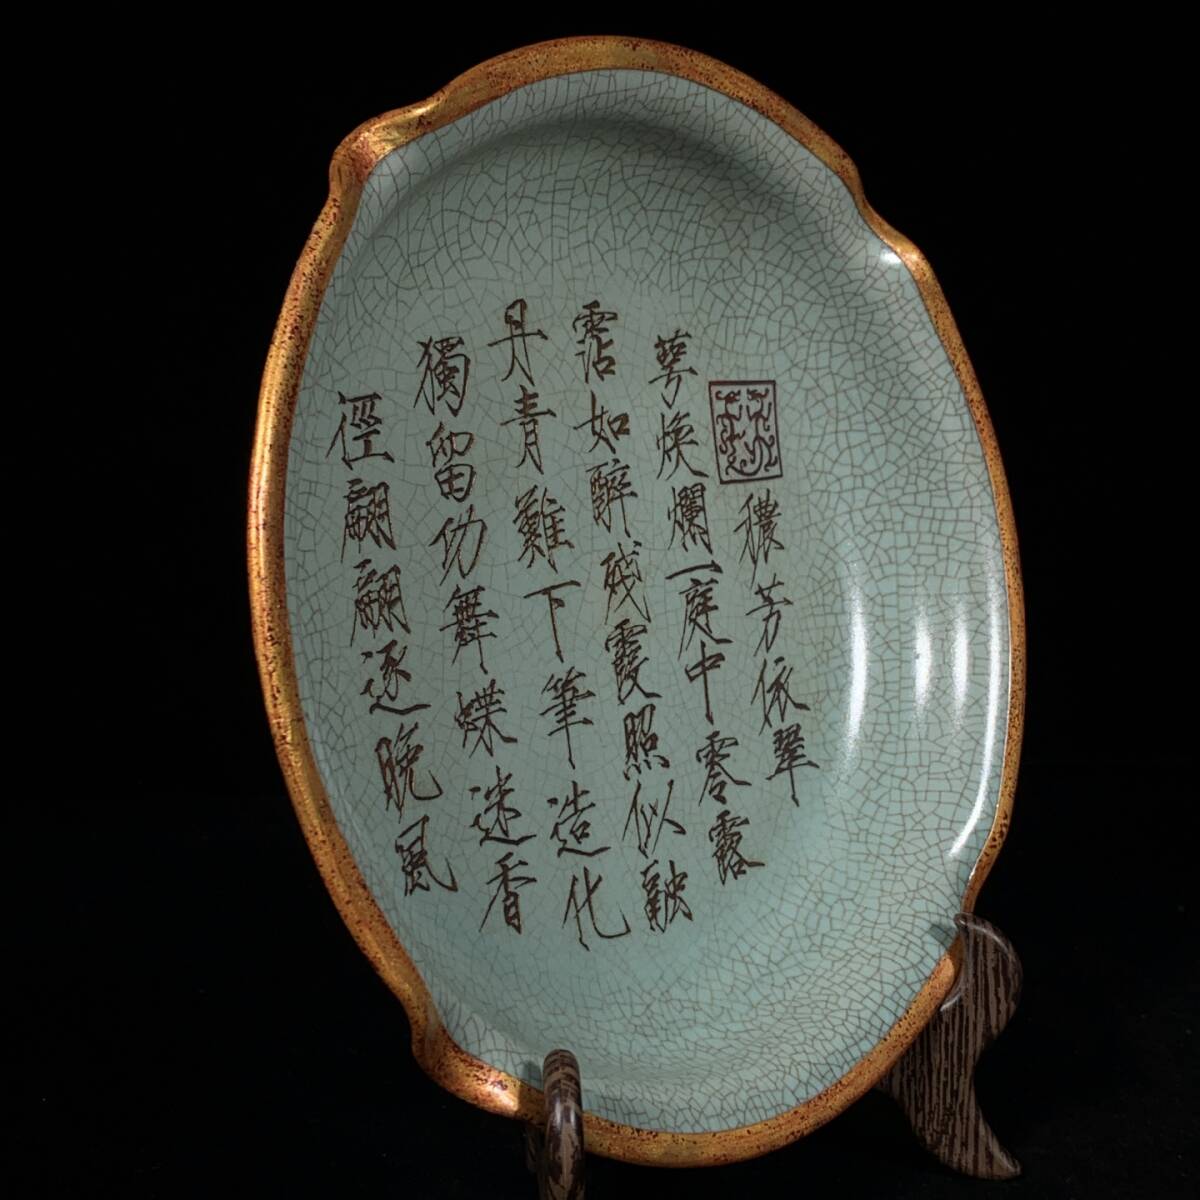 穠芳依翠
萼煥爛一庭中零露
霑如醉殘霞照似融
丹青難下筆造化
獨留功舞蝶迷香
徑翩翩逐晚風